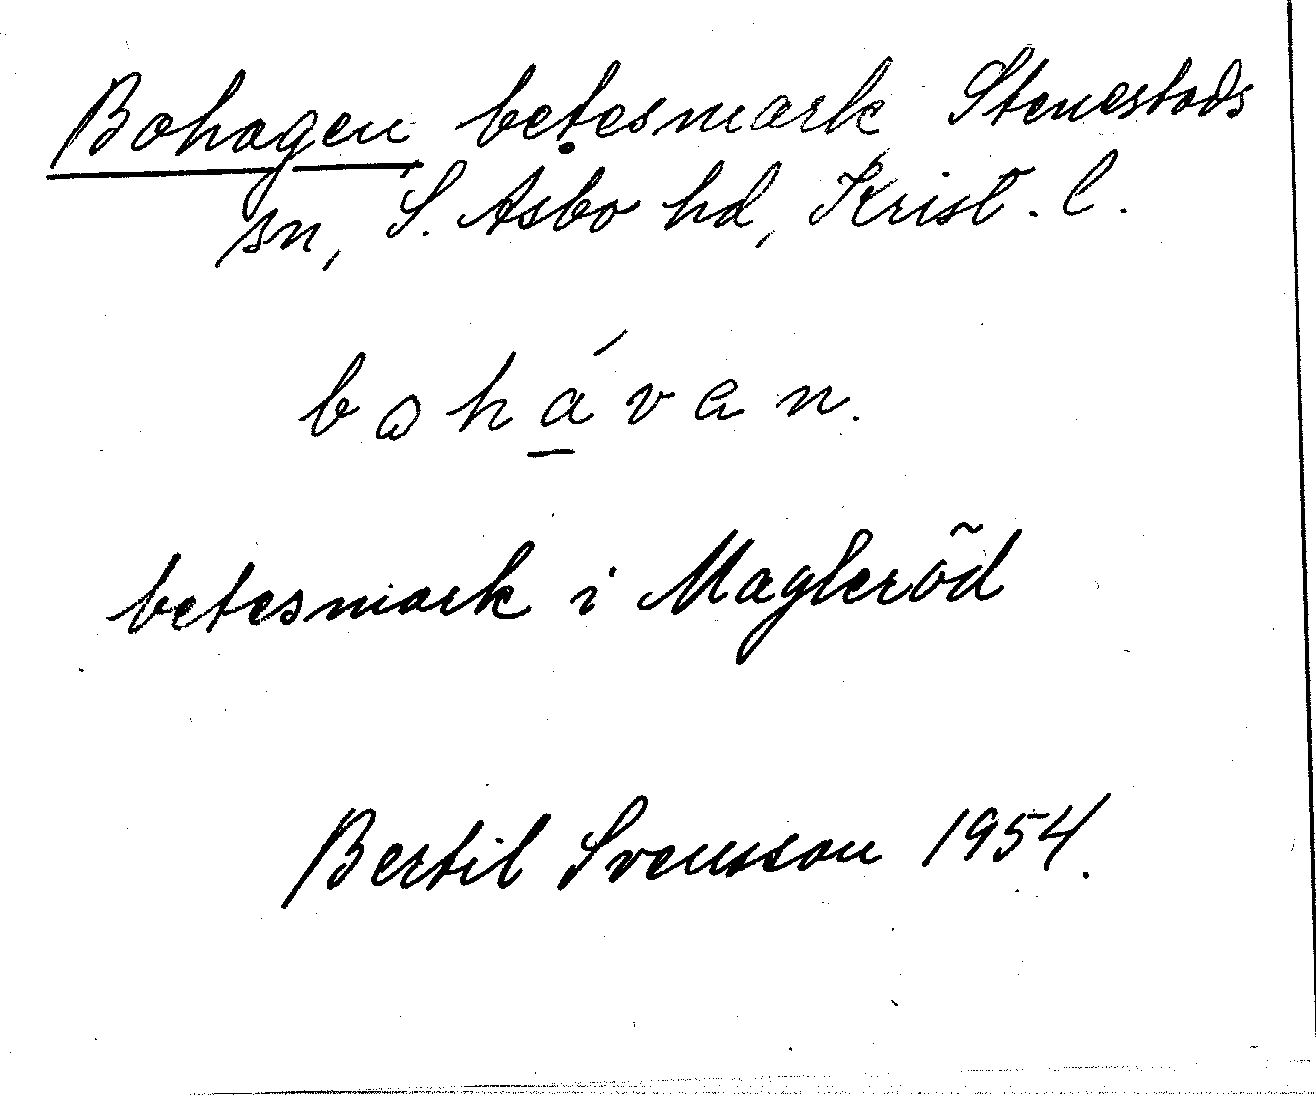 Bohagen betesmark Stenestads
sn, S. Asbo hd, Krist. l.
bohávan.
betesmark i Magleröd
Bertil Svensson 1954.